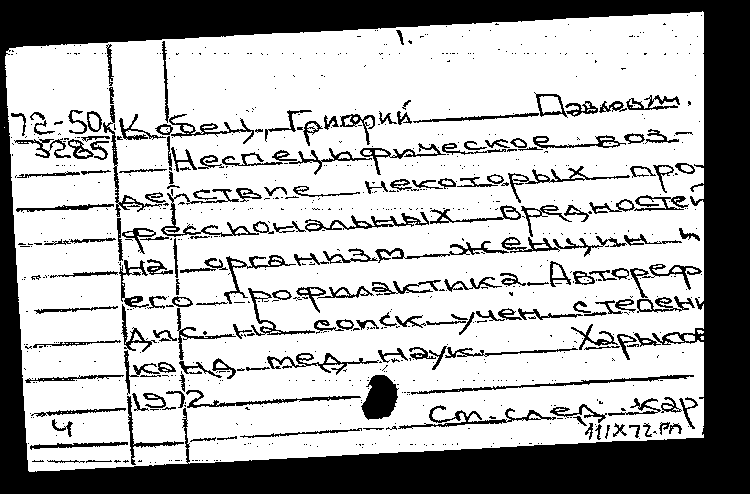 1.
72-50к Кобец, Григорий Павлович.
3285 Неспецифическое воз-
действие некоторых про-
фессиональных вредностей
на организм женщин и
его профилактика. Автореф.
дис. на соиск. учен. степени
канд. мед. наук. Харьков
1972.
Ч См. след. карт
11 IX 72. РП